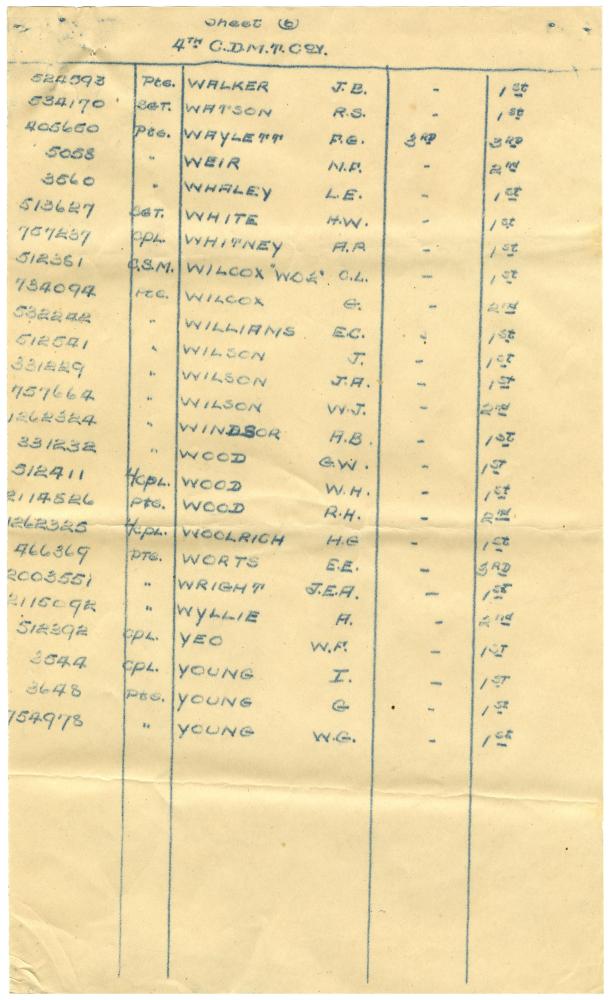 Sheet 6
4TH C.D.M.T. COY.
524593 Pte. WALKER J.B. - 1st
534170 SGT. WATSON R.S. - 1st
405650 Pte. WAYLETT F.G. 3RD 3RD
5058 " WEIR N.F. - 2nd
3560 " WHALEY L.E. - 1st
513627 SGT. WHITE H.W. - 1st
757237 CPL. WHITNEY A.R - 1st
512351 C.S.M. WILCOX "WO2" C.L. - 1st
734094 Pte. WILCOX G. - 2nd
532242 " WILLIAMS E.C. - 1st
512541 " WILSON J. - 1st
331229 " WILSON J.A. - 1st
757664 " WILSON W.J. - 2nd
1262324 " WINDSOR A.B. - 1st
331232 " WOOD G.W. - 1st
512411 L/CPL. WOOD W.H. - 1st
2114526 Pte. WOOD R.H. - 2nd
1262325 L/CPL. WOOLRICH H.G - 1st
466369 PTE. WORTS E.E. - 3RD
2003551 " WRIGHT J.E.A. - 1st
2115092 " WYLLIE A. - 2nd
512392 CPL. YEO W.F. - 1st
3544 CPL. YOUNG I. - 1st
3648 Pte. YOUNG G - 1st
754978 " YOUNG W.G. - 1st